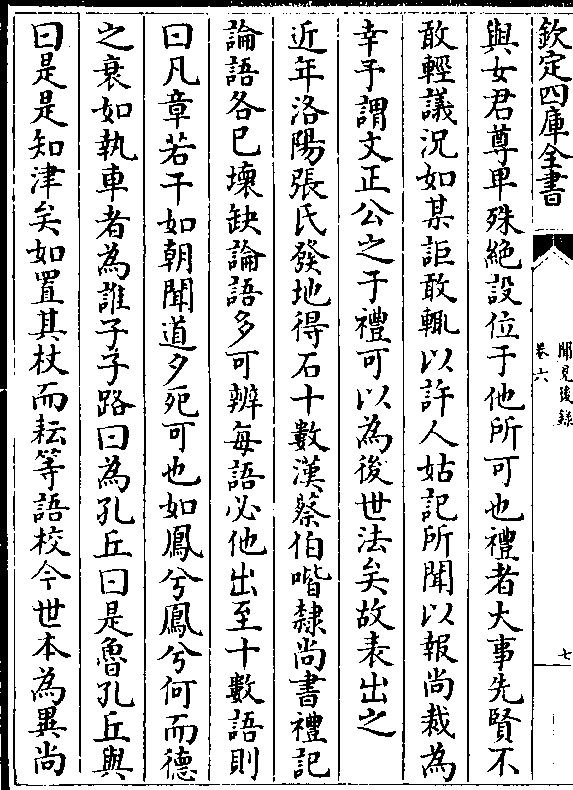 欽定四庫全書
聞見後錄
卷六
七
與女君尊卑殊絶設位于他所可也禮者大事先賢不
敢輕議況如某詎敢輙以許人姑記所聞以報尚裁為
幸予謂文正公之于禮可以為後世法矣故表出之
近年洛陽張氏發地得石十數漢蔡伯喈隸尚書禮記
論語各已壞缺論語多可辨每語必他出至十數語則
曰凡章若干如朝聞道夕死可也如鳳兮鳳兮何而德
之衰如執車者為誰子子路曰為孔丘曰是魯孔丘與
曰是是知津矣如置其杖而耘等語校今世本為異尚